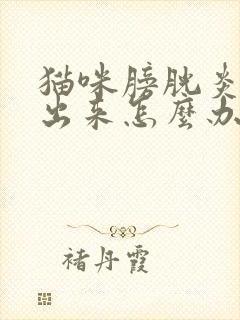 猫咪膀胱炎
出来怎麼办
褚丹霞